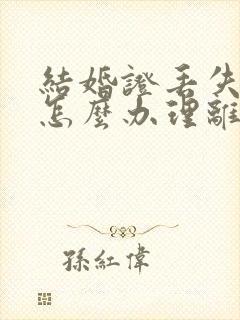 結婚證丟失
怎麼办理離
孫紅偉